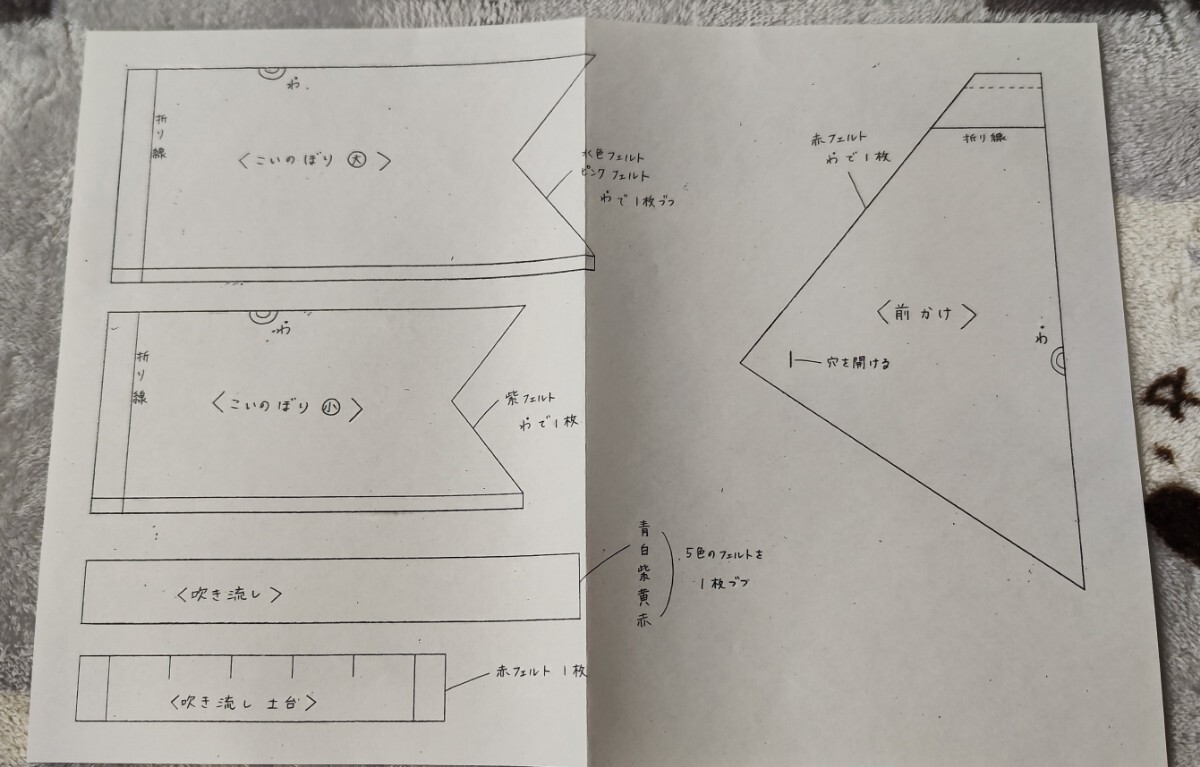 わ
折り線
〈こいのぼり 大〉
水色フェルト
ピンクフェルト
わで1枚づつ
わ
折り線
〈こいのぼり 小〉
紫フェルト
わで1枚
〈吹き流し〉
青
白
紫
黄
赤
5色のフェルトを
1枚づつ
〈吹き流し 土台〉
赤フェルト 1枚
赤フェルト
わで1枚
折り線
〈前かけ〉
わ
穴を開ける